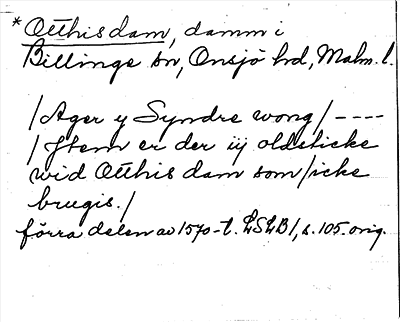 *Otthis dam, damm i
Billinge sn, Onsjö hd, Malm. l.
/Ager y Syndre wong/ ----
/Jtem er der iij oldsticke
wid Otthis dam som/icke
brugis./
förra delen av 1570-t. LSLB1, s. 105. orig.